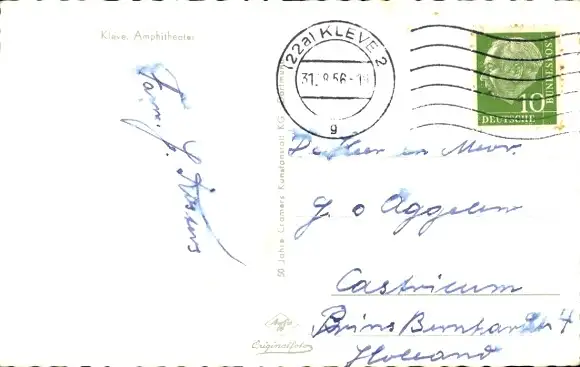 Kleve, Amphitheater
(22a) KLEVE 2
31.8.56-1
g
10
DEUTSCHE
BUNDESPOST
Fam. J.
50 Jahre Cramers Kunstanstalt KG. Dortmund
De Heer en Mevr.
J. v Aggelen
Castricum
Prins Bernhardstr 4
Holland
Agfa
Originalfoto